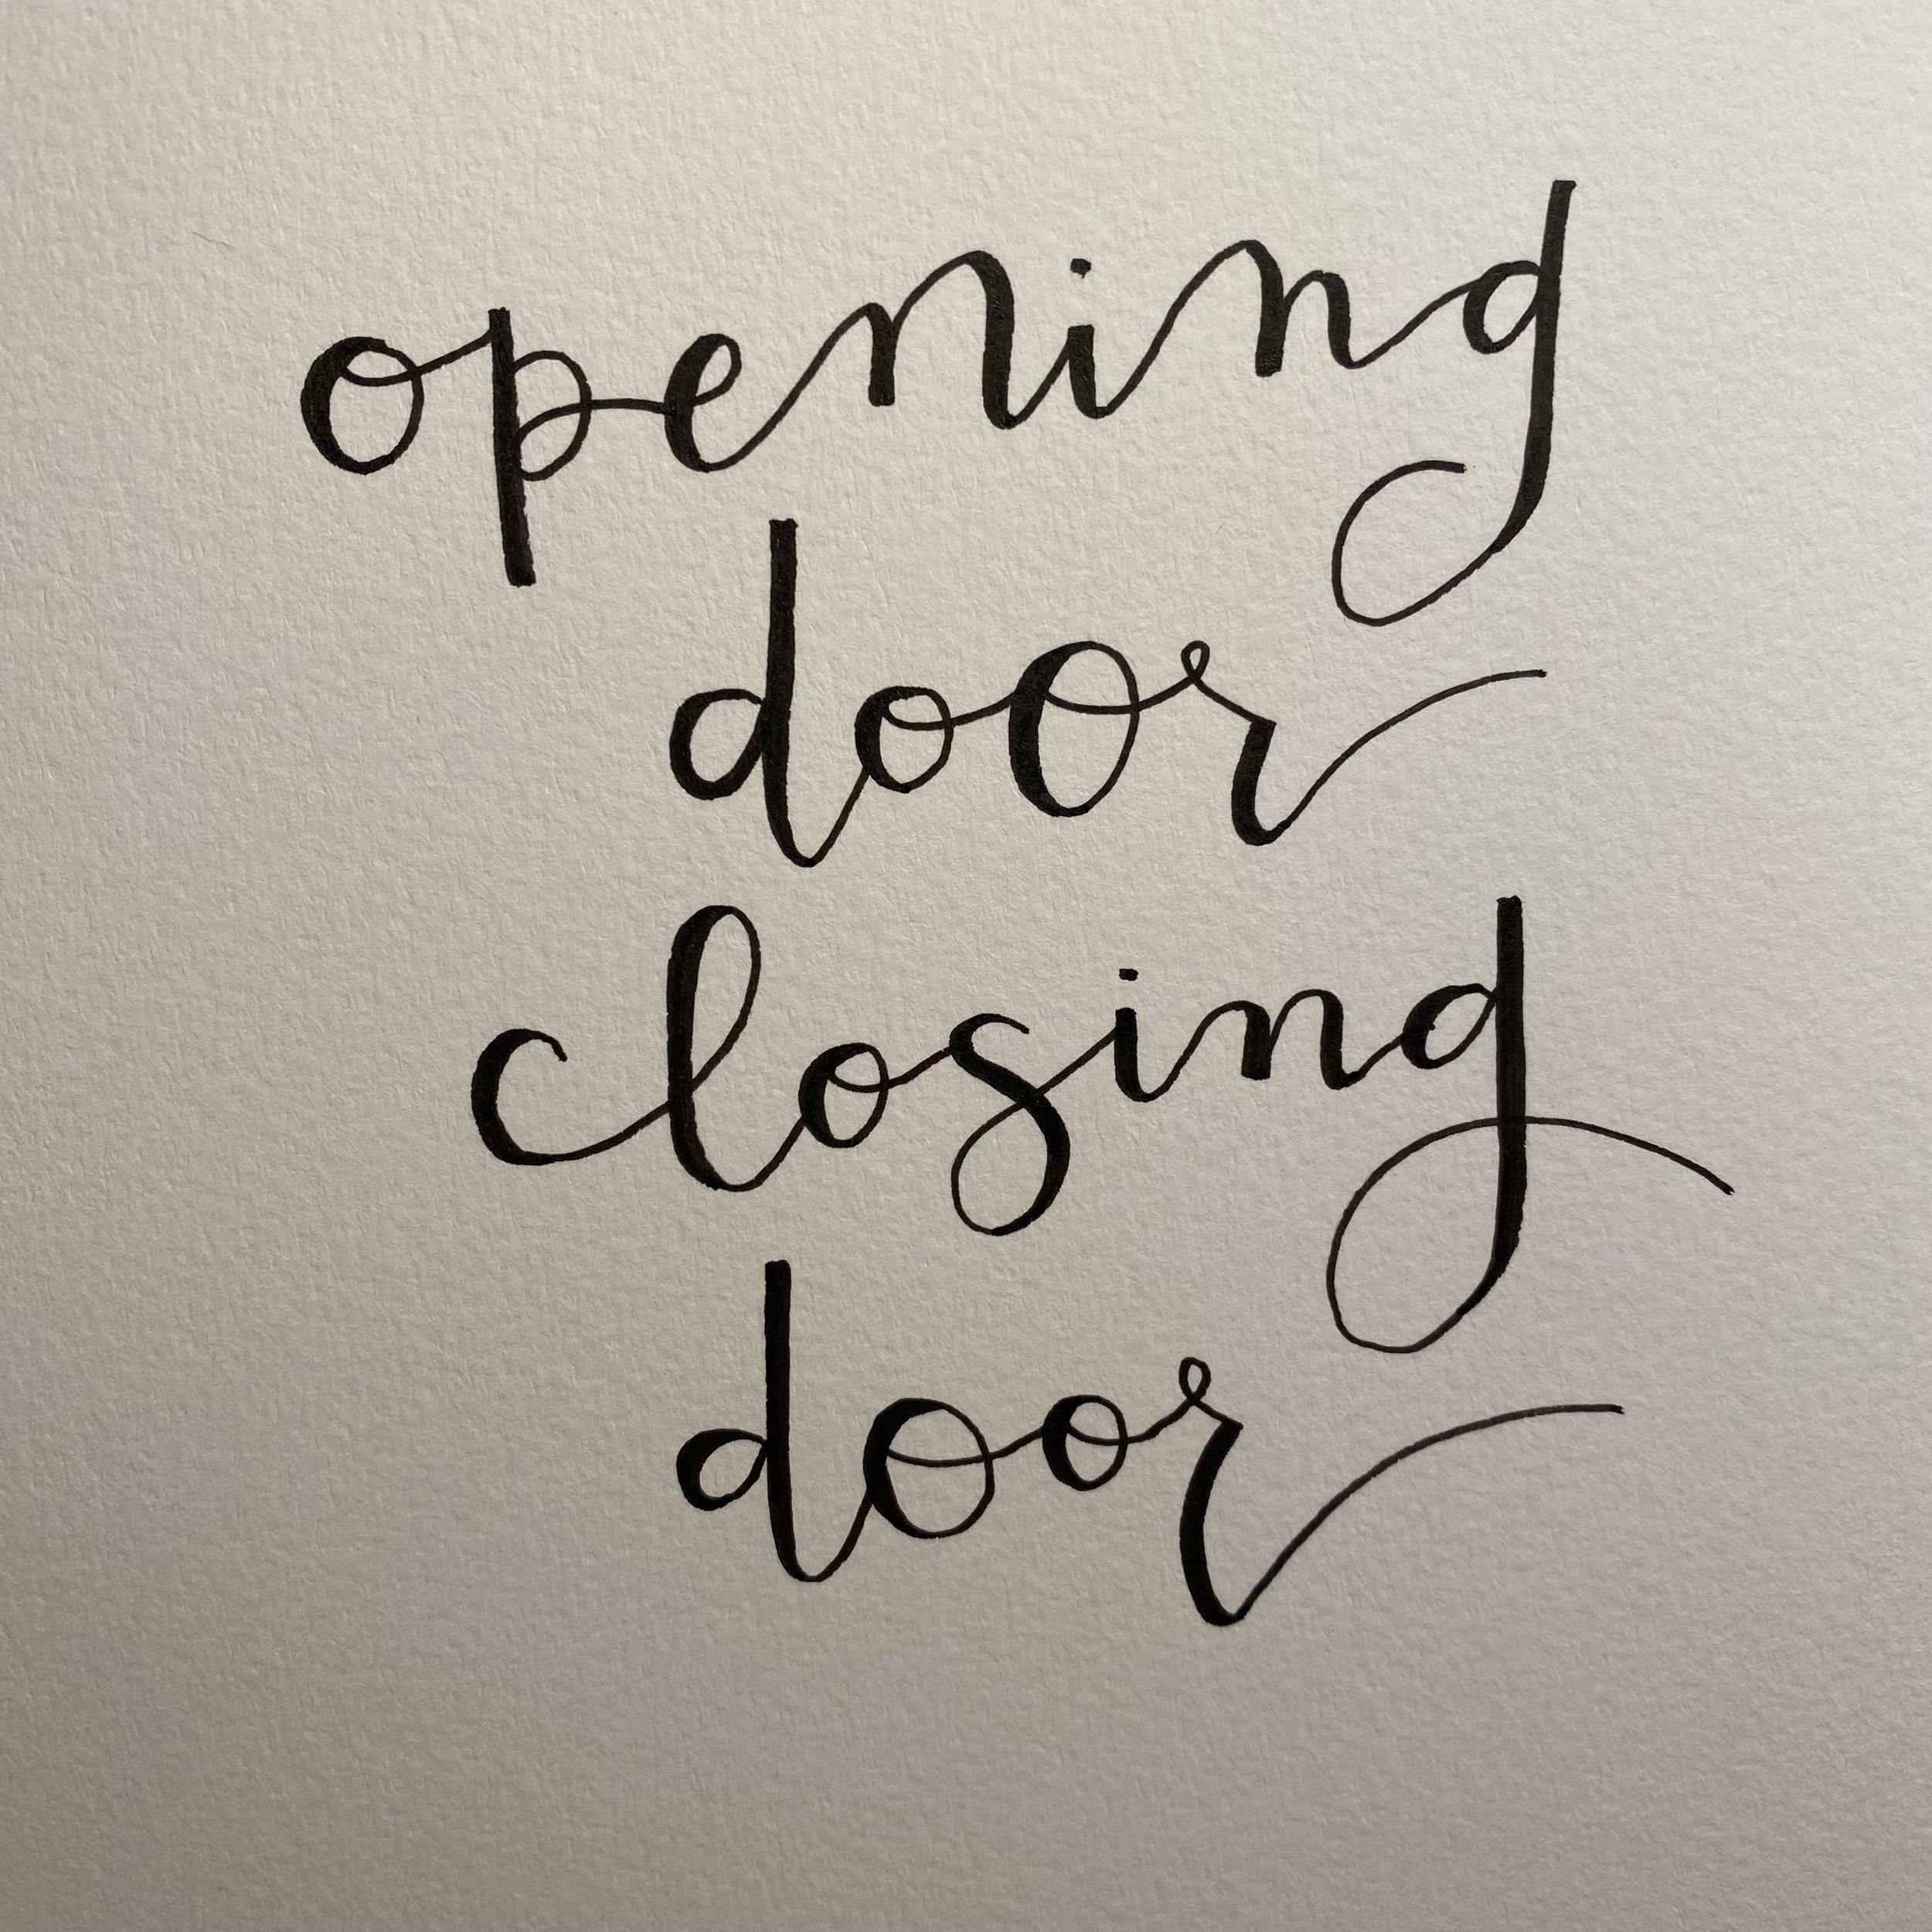 opening
door
closing
door